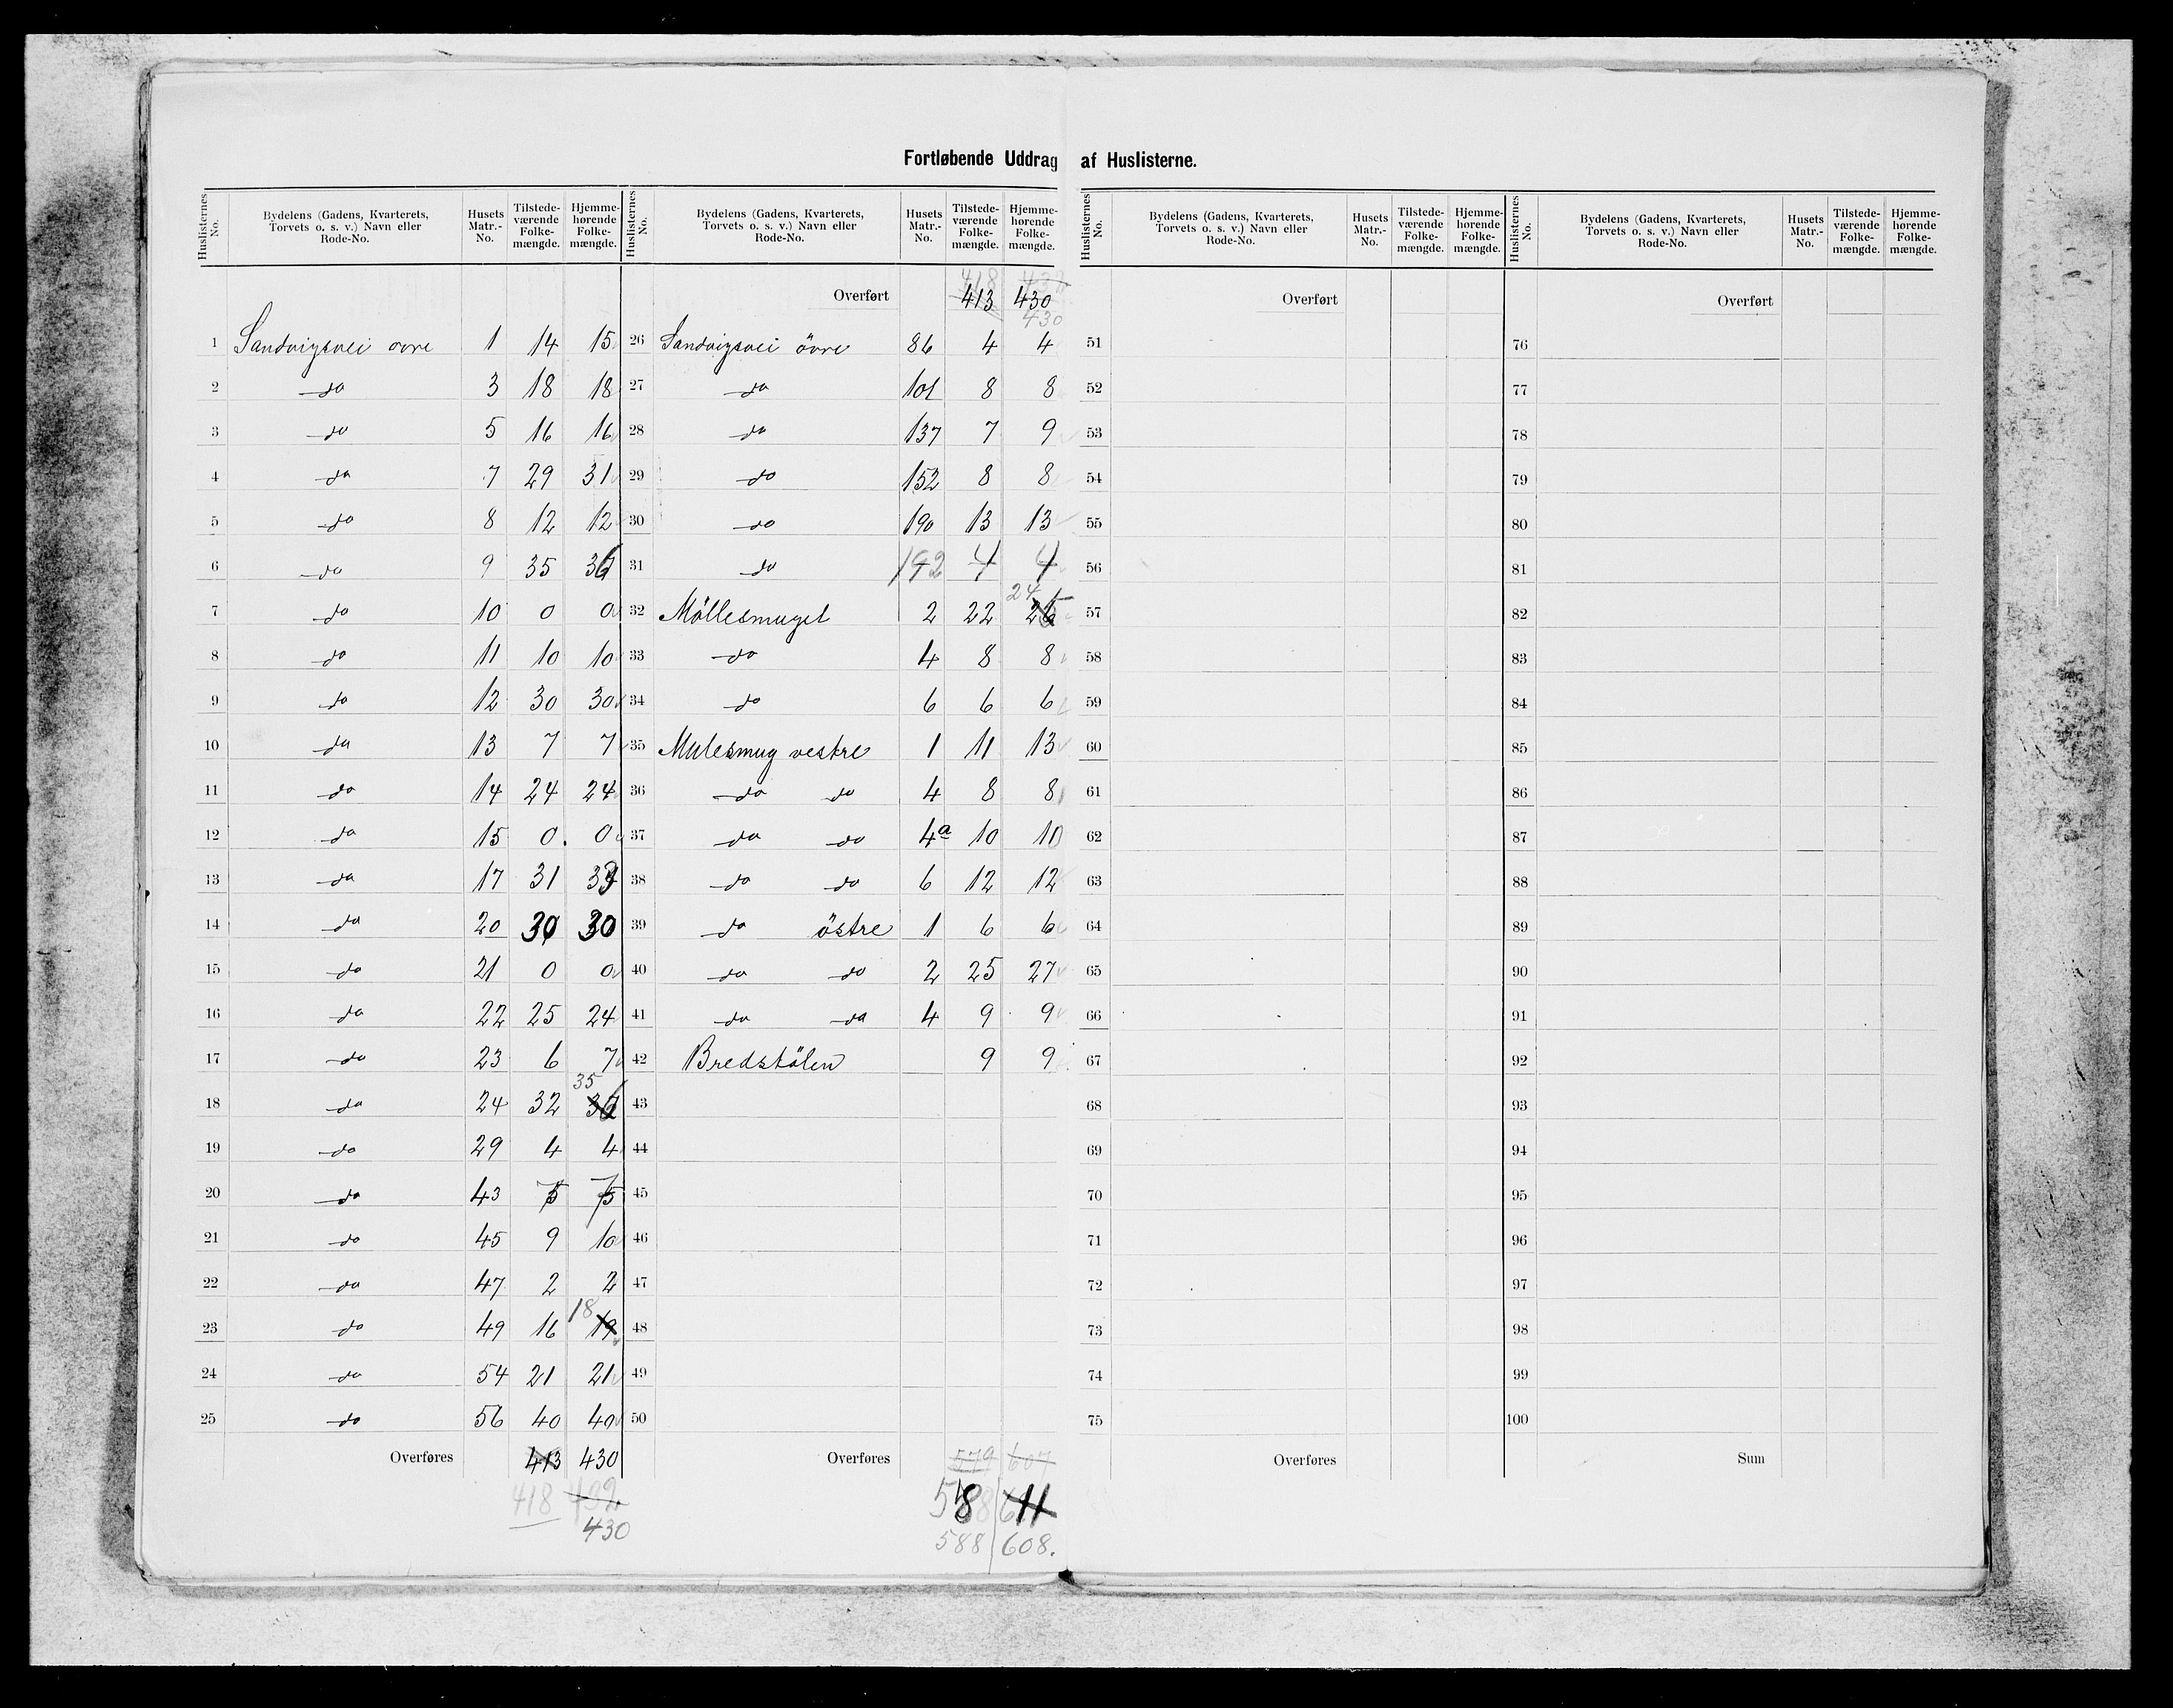 Fortløbende Uddrag af Huslisterne.
Huslisternes No. Bydelens (Gadens, Kvarterets, Torvets o. s. v.) Navn eller Rode-No. Husets Matr.-No. Tilstede-værende Folke-mængde. Hjemme-hørende Folke-mængde.
1 Sandvigsvei øvre 1 14 15
2 do 3 18 18
3 do 5 16 16
4 do 7 29 31
5 do 8 12 12
6 do 9 35 36
7 do 10 0 0
8 do 11 10 10
9 do 12 30 30
10 do 13 7 7
11 do 14 24 24
12 do 15 0. 0
13 do 17 31
14 do 20 30 30
15 do 21 0 0
16 do 22 25 24
17 do 23 6 7
35
18 do 24 32
19 do 29 4 4
20 do 43
21 do 45 9 10
22 do 47 2 2
18
23 do 49 16 19
24 do 54 21 21
25 do 56 40 40
Overføres 413 430
418 432
430
Huslisternes No. Bydelens (Gadens, Kvarterets, Torvets o. s. v.) Navn eller Rode-No. Husets Matr.-No. Tilstede-værende Folke-mængde. Hjemme-hørende Folke-mængde.
418 432
Overført 413 430
430
26 Sandvigsvei övre 86 4 4
27 do 101 8 8
28 do 137 7 9
29 do 152 8 8
30 do 190 13 13
31 do 192 4 4
24
32 Möllesmuget 2 22
33 do 4 8 8
34 do 6 6 6
35 Mulesmug vestre 1 11 13
36 do do 4 8 8
37 do do 4a 10 10
38 do do 6 12 12
39 do östre 1 6 6
40 do do 2 25 27
41 do do 4 9 9
42 Bredstölen 9 9
43
44
45
46
47
48
49
50
Overføres 579 607
588 611
588 608.
Huslisternes No. Bydelens (Gadens, Kvarterets, Torvets o. s. v.) Navn eller Rode-No. Husets Matr.-No. Tilstede-værende Folke-mængde. Hjemme-hørende Folke-mængde.
Overført
51
52
53
54
55
56
57
58
59
60
61
62
63
64
65
66
67
68
69
70
71
72
73
74
75
Overføres
Huslisternes No. Bydelens (Gadens, Kvarterets, Torvets o. s. v.) Navn eller Rode-No. Husets Matr.-No. Tilstede-værende Folke-mængde. Hjemme-hørende Folke-mængde.
Overført
76
77
78
79
80
81
82
83
84
85
86
87
88
89
90
91
92
93
94
95
96
97
98
99
100
Sum